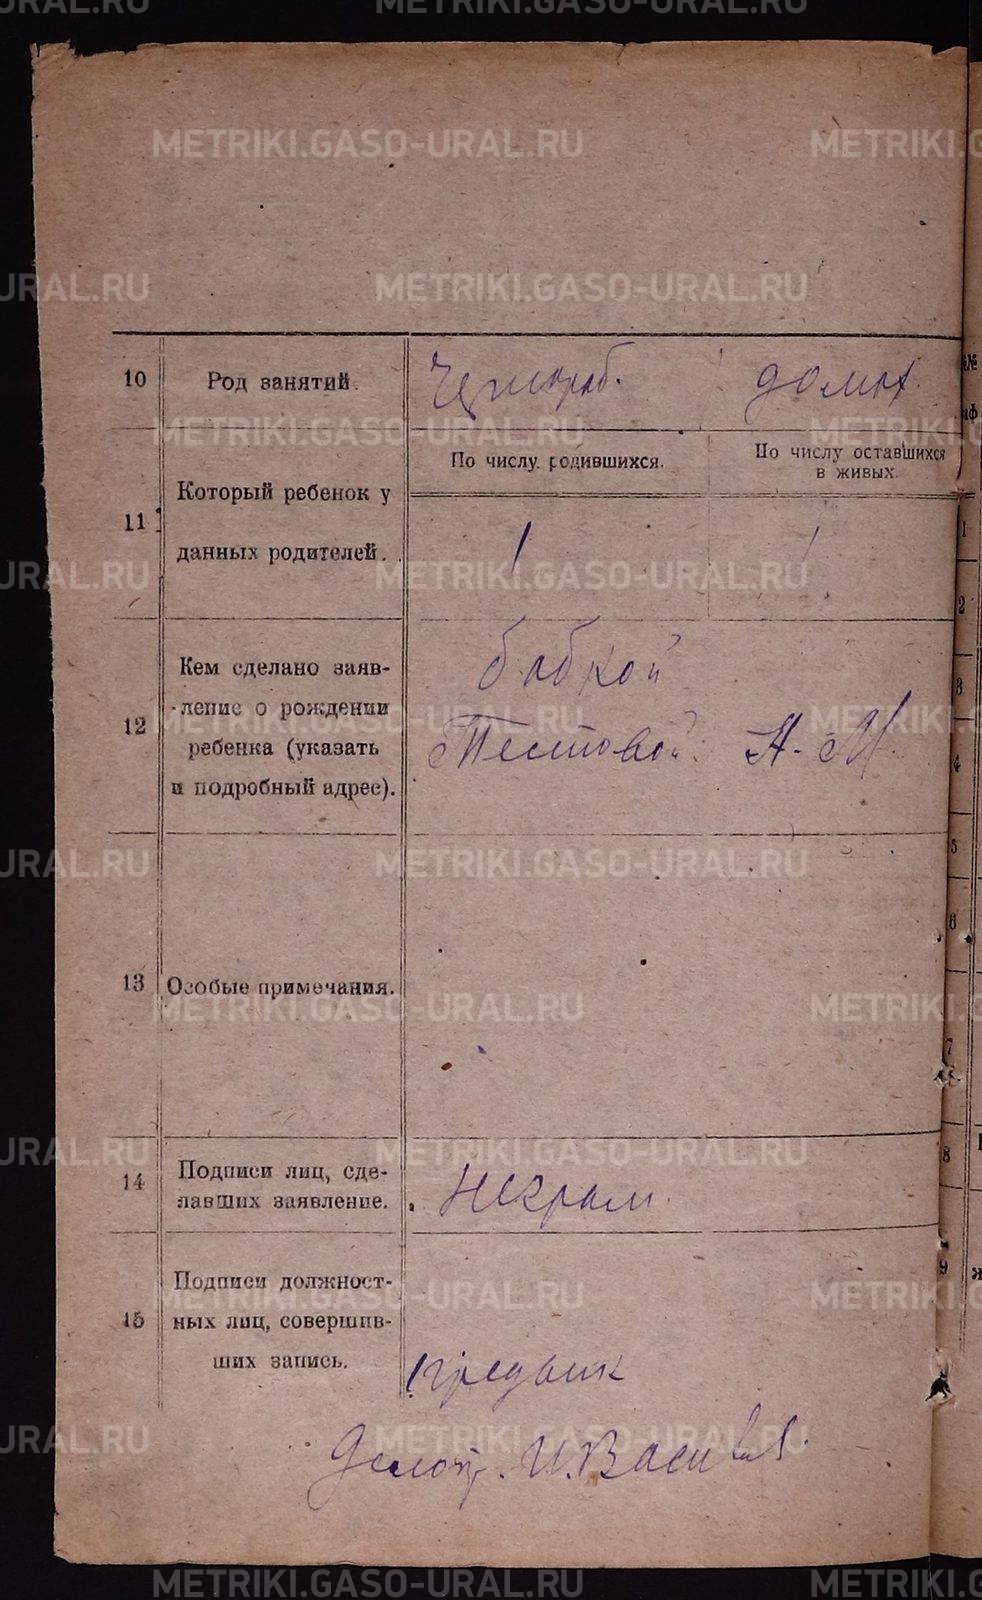 METRIKI.GASO-URAL.RU
10 Род занятий. домох.
По числу родившихся. По числу оставшихся
в живых.
11 Который ребенок у
данных родителей. 1 1
12 Кем сделано заяв-
ление о рождении
ребенка (указать
и подробный адрес).
бабкой
Тестовой А. М.
13 Особые примечания.
14 Подписи лиц, сде-
лавших заявление.
Неграм.
15 Подписи должност-
ных лиц, совершив-
ших запись.
предвик
Делопр. И. Васильев
1
2
3
4
5
6
7
8
9